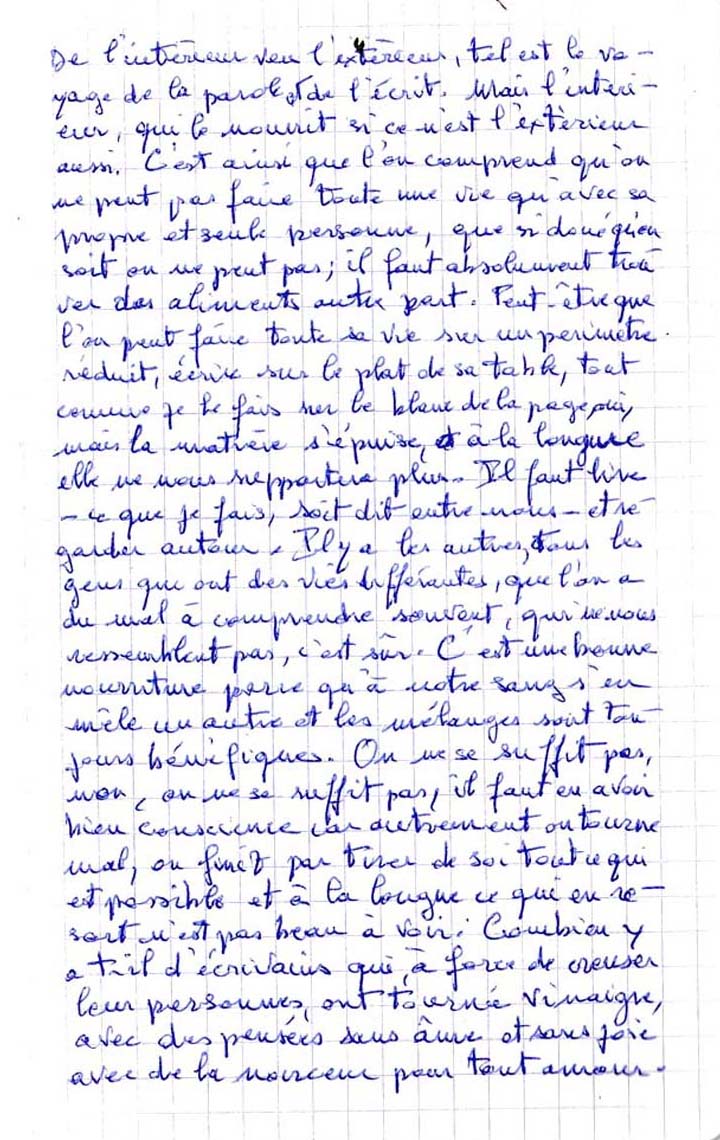 De l'intérieur vers l'extérieur, tel est le vo-
yage de la parole et de l'écrit. Mais l'intéri-
eur, qui le nourrit si ce n'est l'extérieur
aussi. C'est ainsi que l'on comprend qu'on
ne peut pas faire toute une vie qu'avec sa
propre et seule personne, que si doué qu'on
soit on ne peut pas; il faut absolument trou
ver des aliments autre part. Peut-être que
l'on peut faire toute sa vie sur un périmètre
réduit, écrire sur le plat de sa table, tout
comme je le fais sur le blanc de la page, oui,
mais la matière s'épuise, et à la longue
elle ne nous supportera plus. Il faut lire
- ce que je fais, soit dit entre nous - et re-
garder autour. Il y a les autres, tous les
gens qui ont des vies différentes, que l'on a
du mal à comprendre souvent, qui ne nous
ressemblent pas, c'est sûr. C'est une bonne
nourriture parce qu'à notre sang s'en
mêle un autre et les mélanges sont tou-
jours bénéfiques. On ne se suffit pas,
non, on ne se suffit pas, il faut en avoir
bien conscience car autrement on tourne
mal, on finit par tirer de soi tout ce qui
est possible et à la longue ce qui en re-
sort n'est pas beau à voir. Combien y
a t-il d'écrivains qui, à force de creuser
leur personnes, ont tourné vinaigre,
avec des pensées sans âme et sans joie
avec de la noirceur pour tout amour.